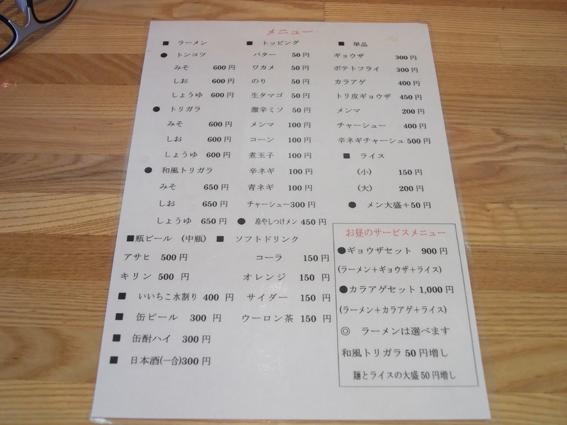 メニュー
■ ラーメン
● トンコツ
みそ 600円
しお 600円
しょうゆ 600円
● トリガラ
みそ 600円
しお 600円
しょうゆ 600円
● 和風トリガラ
みそ 650円
しお 650円
しょうゆ 650円
■ トッピング
バター 50円
ワカメ 50円
のり 50円
生タマゴ 50円
激辛ミソ 50円
メンマ 100円
コーン 100円
煮玉子 100円
辛ネギ 100円
青ネギ 100円
チャーシュー300円
● 冷やしつけメン 450円
■ 単品
ギョウザ 300円
ポテトフライ 300円
カラアゲ 400円
トリ皮ギョウザ 450円
メンマ 200円
チャーシュー 400円
辛ネギチャーシュ500円
■ ライス
(小) 150円
(大) 200円
● メン大盛+50円
■瓶ビール (中瓶)
アサヒ 500円
キリン 500円
■ いいちこ水割り 400円
■ 缶ビール 300円
■ 缶酎ハイ 300円
■ 日本酒(一合)300円
■ ソフトドリンク
コーラ 150円
オレンジ 150円
サイダー 150円
ウーロン茶 150円
お昼のサービスメニュー
●ギョウザセット 900円
(ラーメン+ギョウザ+ライス)
●カラアゲセット1,000円
(ラーメン+カラアゲ+ライス)
◎ ラーメンは選べます
和風トリガラ50円増し
麺とライスの大盛50円増し